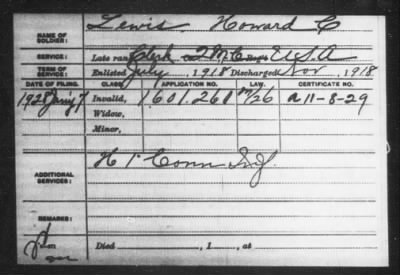 NAME OF SOLDIER: Lewis, Howard C
SERVICE: Late rank Clerk Q M C Reg't U S A
TERM OF SERVICE: Enlisted July, 1918 Discharged Nov, 1918
DATE OF FILING. CLASS. APPLICATION NO. LAW. CERTIFICATE NO.
1928 Invalid, 1601.261 A 11-8-29
Widow,
Minor,
ADDITIONAL SERVICES: Conn
REMARKS:
Died , 1 , at